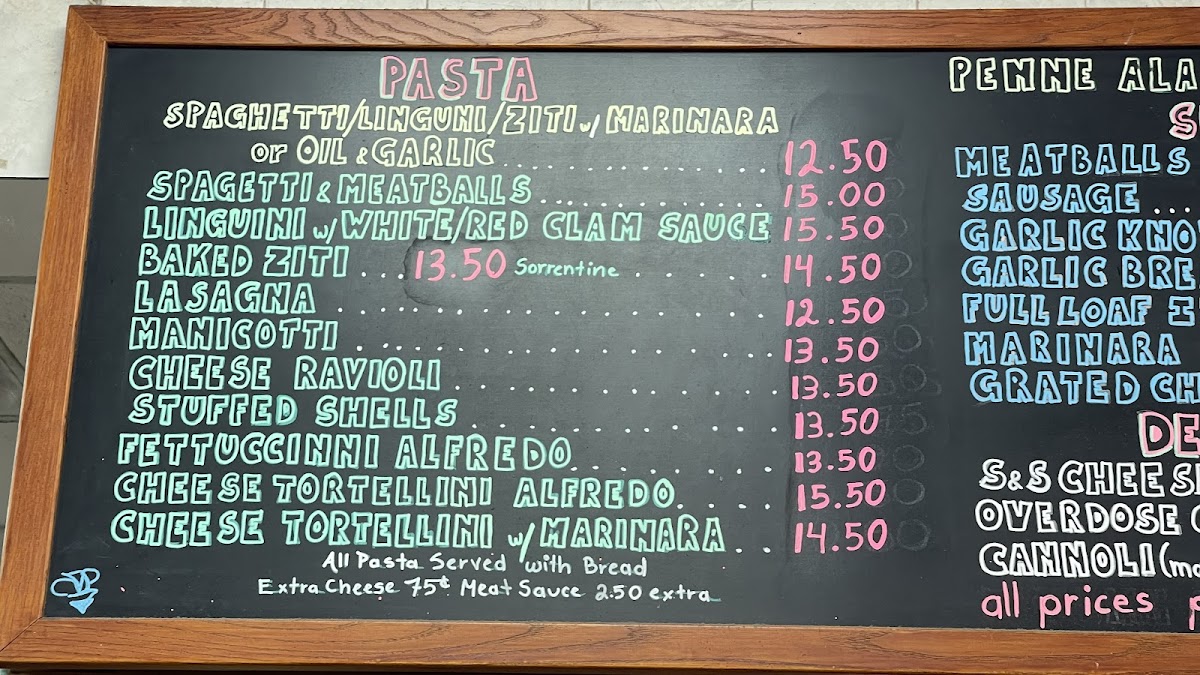 PASTA
SPAGHETTI/LINGUNI/ZITI w/ MARINARA
or OIL & GARLIC ............... 12.50
SPAGETTI & MEATBALLS ............... 15.00
LINGUINI w/ WHITE/RED CLAM SAUCE 15.50
BAKED ZITI ... 13.50 Sorrentine ....... 14.50
LASAGNA ............... 12.50
MANICOTTI ............... 13.50
CHEESE RAVIOLI ............... 13.50
STUFFED SHELLS ............... 13.50
FETTUCCINNI ALFREDO ........ 13.50
CHEESE TORTELLINI ALFREDO .... 15.50
CHEESE TORTELLINI w/ MARINARA .. 14.50
All Pasta Served with Bread
Extra Cheese 75¢ Meat Sauce 2.50 extra
PENNE ALA
S
MEATBALLS
SAUSAGE ...
GARLIC KNO
GARLIC BRE
FULL LOAF I
MARINARA
GRATED CH
DE
S&S CHEES
OVERDOSE
CANNOLI (m
all prices p